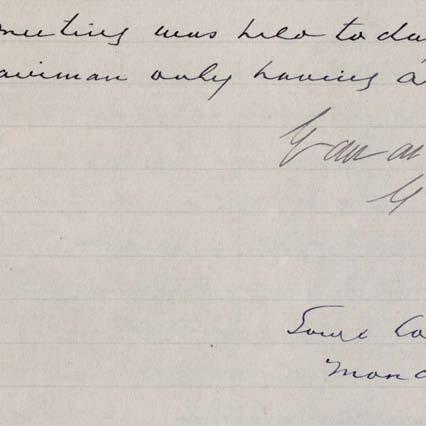 meeting was held to da
airman only having a
Town Co
Mon